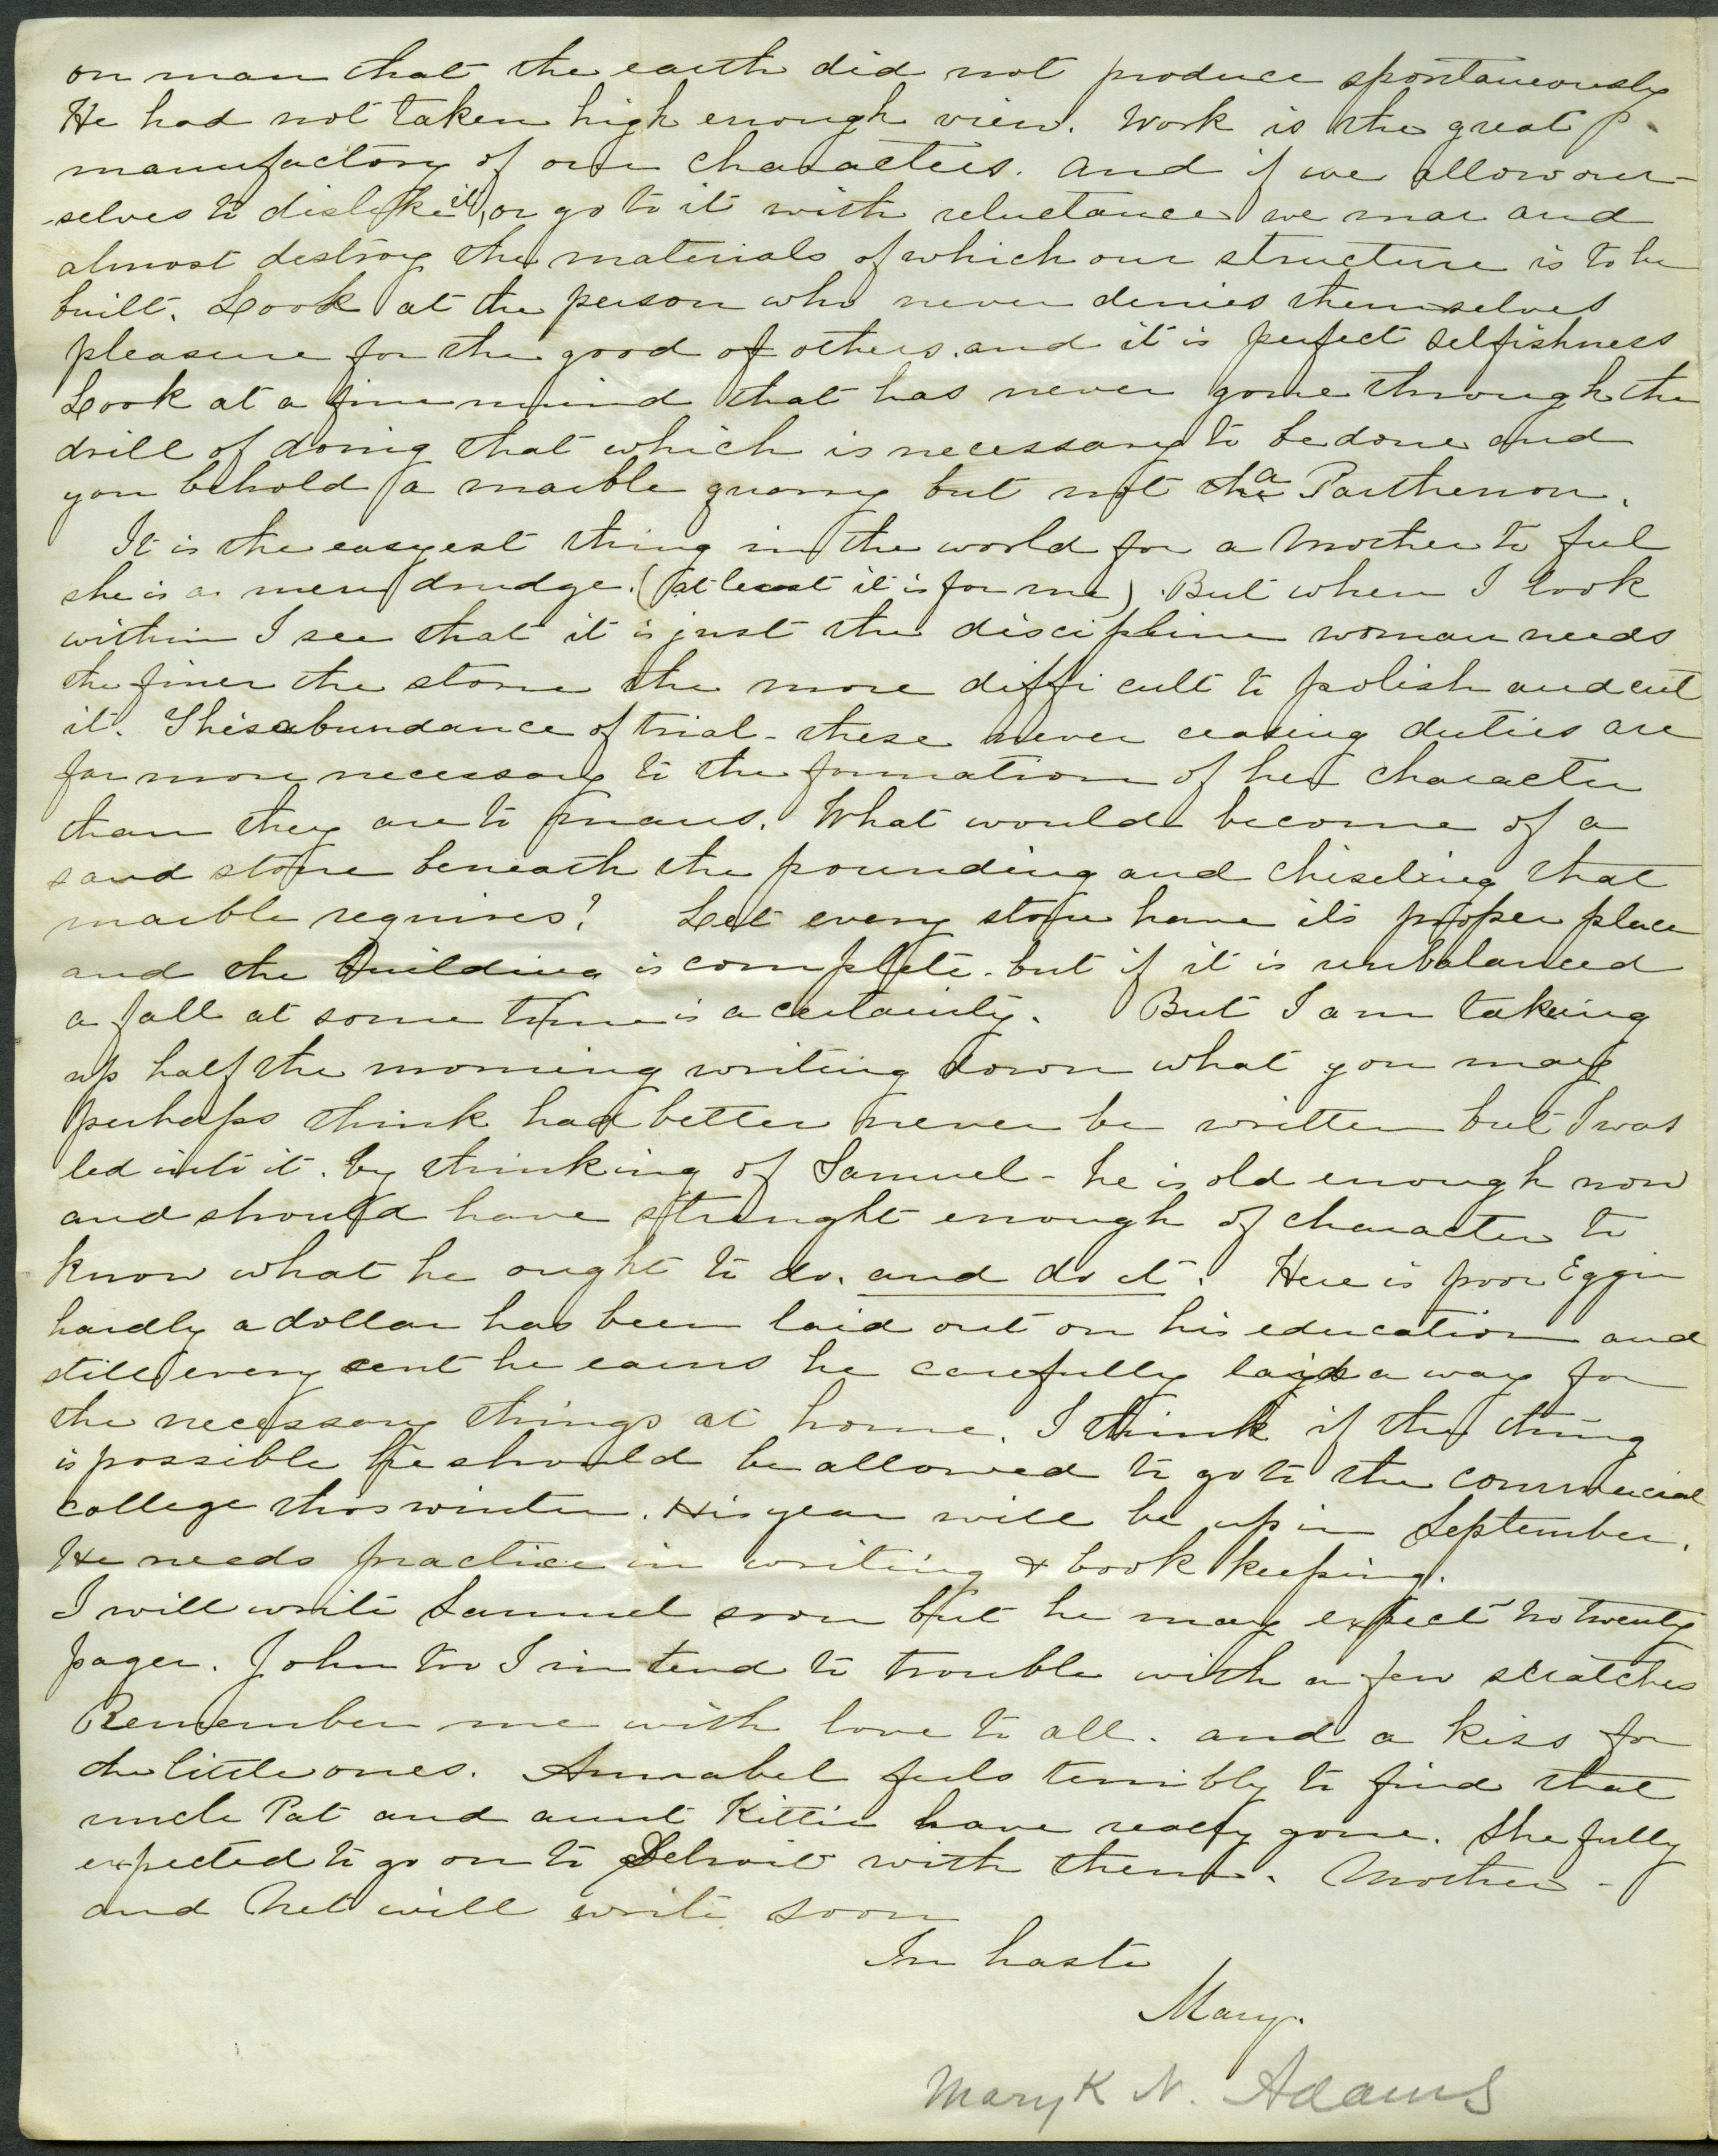 on man that the earth did not produce spontaneously
He had not taken high enough view. Work is the great
manufactory of our characters. And if we allow our-
-selves to dislike it, or go to it with reluctance we mar and
almost destroy the materials of which our structure is to be
built. Look at the person who never denies themselves
pleasure for the good of others. and it is perfect selfishness
Look at a fine mind that has never gone through the
drill of doing that which is necessary to be done and
you behold a marble quarry but not a Parthenon.
It is the easyest thing in the world for a Mother to feel
she is a mere drudge. (at least it is for me). But when I look
within I see that it is just the discipline woman needs
the finer the stone the more difficult to polish and cut
it. This abundance of trial - these never ceasing duties are
far more necessary to the formation of her character
than they are to mans. What would become of a
sand stone beneath the pounding and chiseling that
marble requires? Let every stone have its proper place
and the building is complete. but if it is unbalanced
a fall at some time is a certainty. But I am takeing
up half the morning writing down what you may
perhaps think had better never be written but I was
led into it. by thinking of Samuel - he is old enough now
and should have strenght enough of character to
know what he ought to do. and do it. Here is poor Eggie
hardly a dollar has been laid out on his education and
still every cent he earns he carefully lays a way for
the necessary things at home. I think if the thing
is possible he should be allowed to go to the commercial
college this winter. His year will be up in September.
He needs practice in writing & book keeping.
I will write Samuel soon but he may expect no twenty
pager. John too I intend to trouble with a few scratches
Remember me with love to all. and a kiss for
the little ones. Annabel feels terribly to find that
uncle Pat and aunt Kittie have really gone. She fully
expected to go on to Detroit with them. Mother -
and Net will write soon
In haste
Mary.
Mary K N. Adams